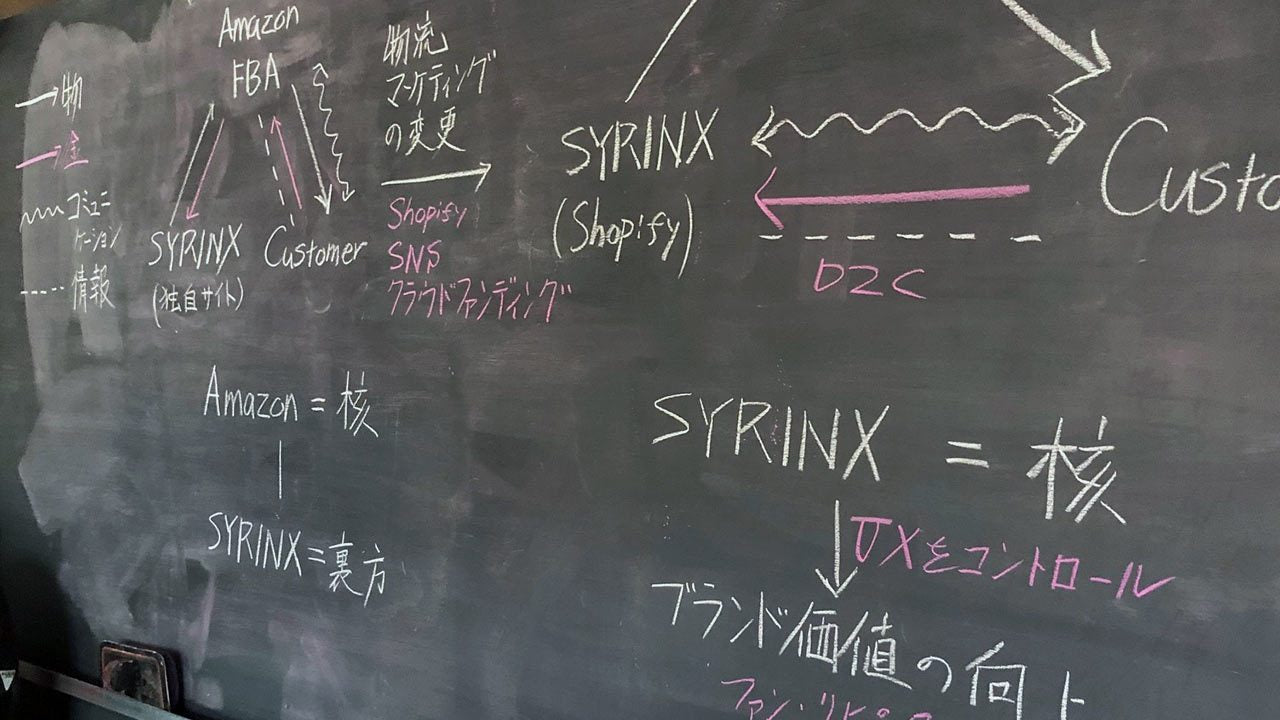 物
金
コミュニ
ケーション
情報
Amazon
FBA
SYRINX
(独自サイト)
Customer
物流
マーケティング
の変更
Shopify
SNS
クラウドファンディング
SYRINX
(Shopify)
D2C
Custo
Amazon = 核
SYRINX = 裏方
SYRINX = 核
UXをコントロール
ブランド価値の向上
ファン・リピ